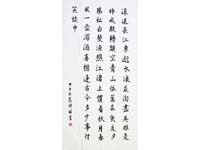 滾滾長江東逝水浪花淘盡英雄是
非成敗轉頭空青山依舊在幾度夕
陽紅白髮漁樵江渚上慣看秋月春
風一壺濁酒喜相逢古今多少事付
笑談中